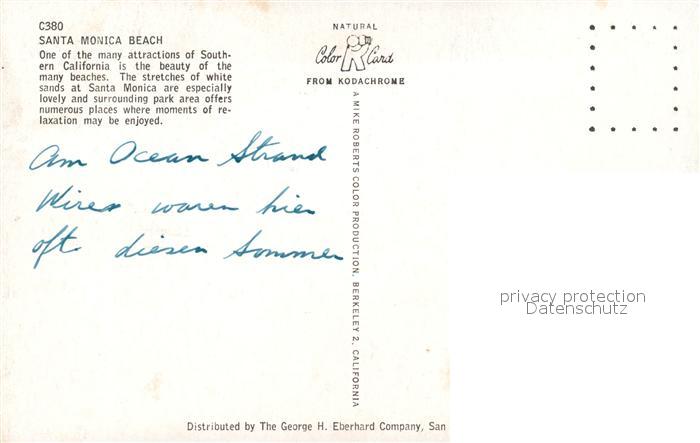 C380
SANTA MONICA BEACH
One of the many attractions of South-
ern California is the beauty of the
many beaches. The stretches of white
sands at Santa Monica are especially
lovely and surrounding park area offers
numerous places where moments of re-
laxation may be enjoyed.
NATURAL
Color Card
FROM KODACHROME
Am Ocean Strand
waren hier
oft diesen Sommer
A MIKE ROBERTS COLOR PRODUCTION, BERKELEY 2, CALIFORNIA
privacy protection
Datenschutz
Distributed by The George H. Eberhard Company, San